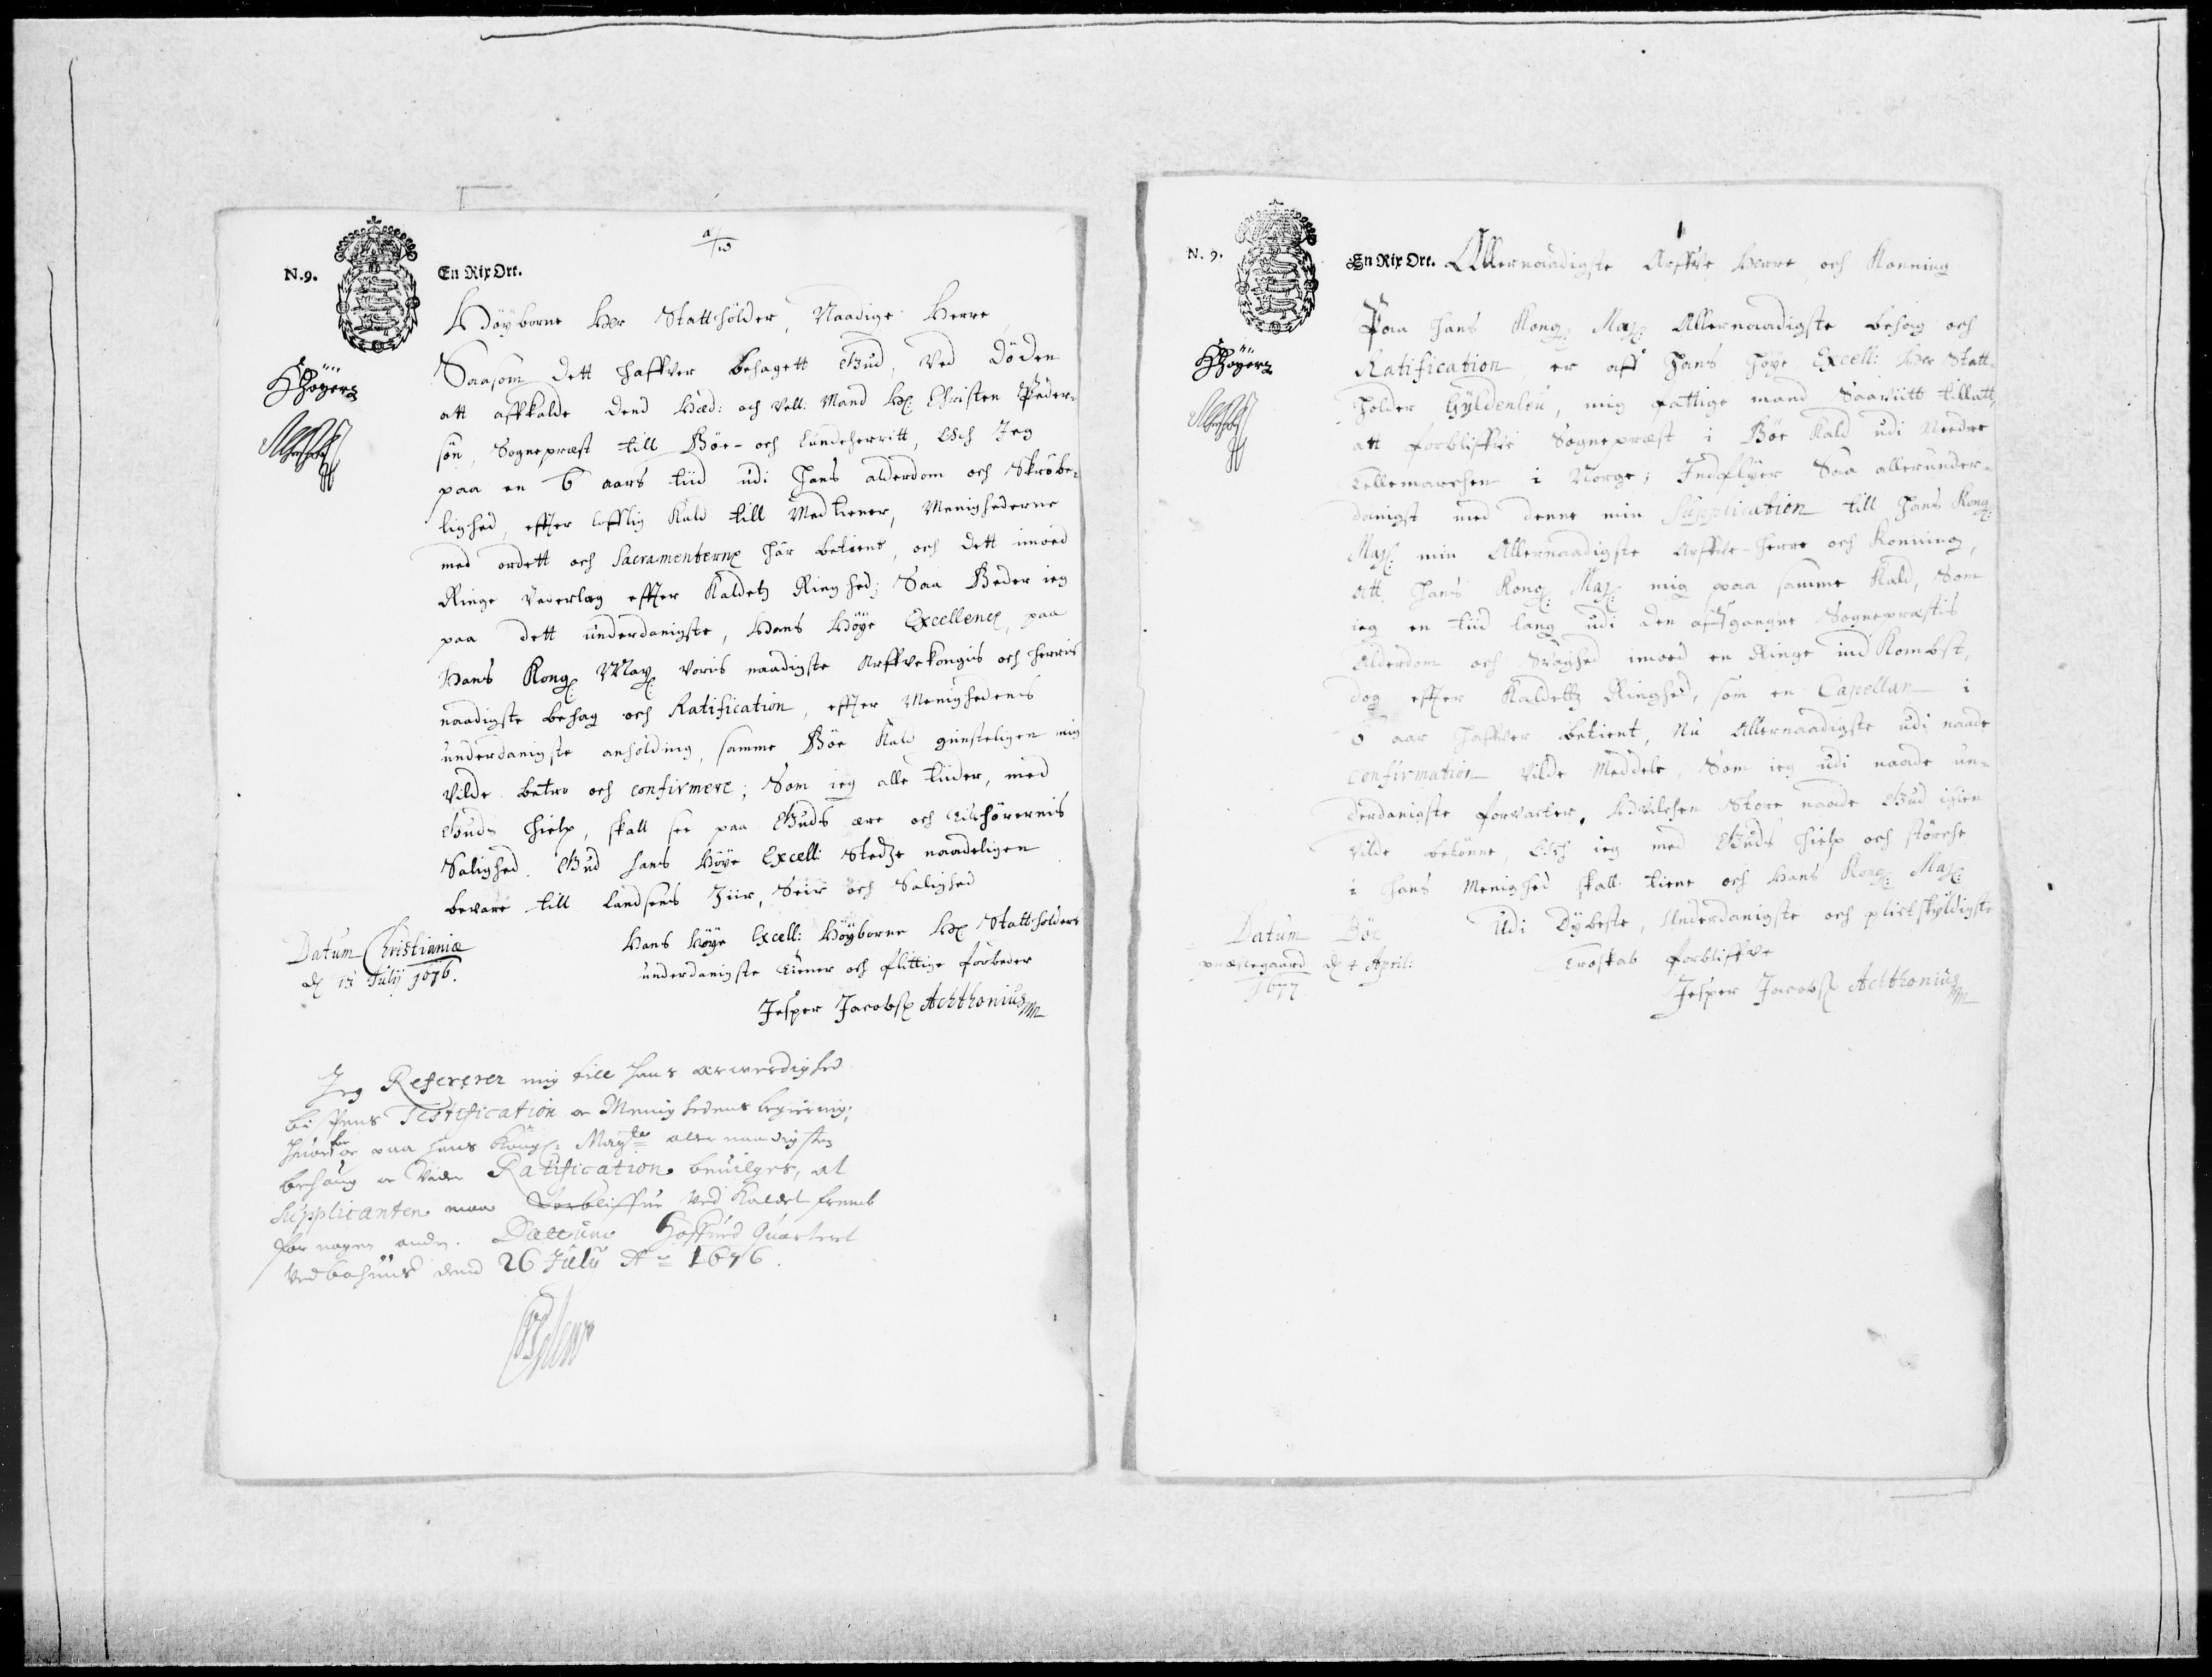 N.9.
En Rix Ort.
Höÿborne Her Stattholder, Naadige Herre
Saasom dett haffver behagett Gud, ved Döden
att affkalde dend Hæd: och Vell: Mand Hr: Christen Peder-
sön, Sognepræst till Böe- och Lundeherritt, Och Jeg
paa en 6 aars tiid udi hans alderdom och Skröbe-
lighed, effter lofflig Kald till Medtiener, Menighederne
med ordett och Sacramenterne har betient, och dett imod
Ringe Vederlag effter Kaldetz Ringhed; Saa Beder ieg
paa dett underdanigste, Hans Höÿe Excellence, paa
Hans Kong: Maÿ: voris naadigste Arffvekongis och herris
naadigste behag och Ratification, effter Menighedens
underdanigste anholding, samme Böe Kald gunsteligen mig
vilde betro och confirmere; Som ieg alle tiider, med
Guds hielp, skall see paa Guds ære och Tilhörernis
Salighed. Gud hans Höÿe Excell: Stedze naadeligen
bevare till Landsens Ziir, Seir och Salighed
Datum Christianiæ
d: 13 Julij 1676.
Hans Höÿe Excell: Höÿborne Hr: Stattholders
underdanigste tiener och flittige forbeder
Jesper Jacobs: Achthonius
Jeg Refererer mig till hans ærwerdighed
bispens Testification oc Menighedens begiering;
huorfor oc paa hans Kongl: Maÿtz allernaadigste
behaug oc Videre Ratification beuilges, at
Supplicanten maa forbliffue ved Kaldet fremb
for nogen anden. Datum Hoffued Quarteret
Ved Bahuus dend 26 Julÿ Ao 1676.
N. 9.
En Rix Ort.
Allernaadigste Arffve Herre och Konning
Paa hans Kong: Maÿ: Allernaadigste behag och
Ratification er aff Hans höÿe Excell: Her Statt-
holder Gÿldenleu, mig fattige mand Saaviitt tillatt,
att forbliffve Sognepræst i Böe Kald udi Needre
Tellemarchen i Norge; Indflÿer Saa allerunder-
danigst med denne min Supplication till Hans Kong:
Maÿ: min Allernaadigste Arffve-herre och Konning,
att Hans Kong: Maÿ: mig paa samme Kald, Som
ieg en tiid lang udi den affgangne Sognepræstis
Alderdom och Svaghed imod en Ringe indKombst,
dog effter Kaldettz Ringhed, som en Capellan i
6 aar haffver betient, Nu Allernaadigste udi naade
confirmation vilde Meddele, Som ieg udi naade un-
derdanigste forvarter, Hvilchen Store naade Gud igien
vilde belönne, Och ieg med Guds hielp och störche
i hans Menighed skall tiene och Hans Kong: Maÿ:
Udi Dÿbeste, Underdanigste och plictskÿldigste
Troskab forbliffve
Datum Böe
præstegaard d: 4 April:
1677.
Jesper Jacobs: Achthonius